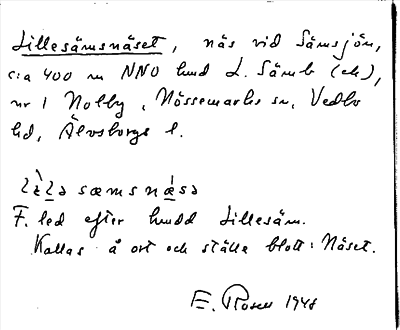 Lillesämsnäset, näs vid Sämsjön,
c:a 400 m NNO hmd L. Säm (ek),
nr 1 Nolby, Nössemarks sn, Vedbo
hd, Älvsborgs l.
sæmsnæsə
F. led efter hmdd Lillesäm.
Kallas å ort och ställe blott: Näset.
E. Rosell 1948